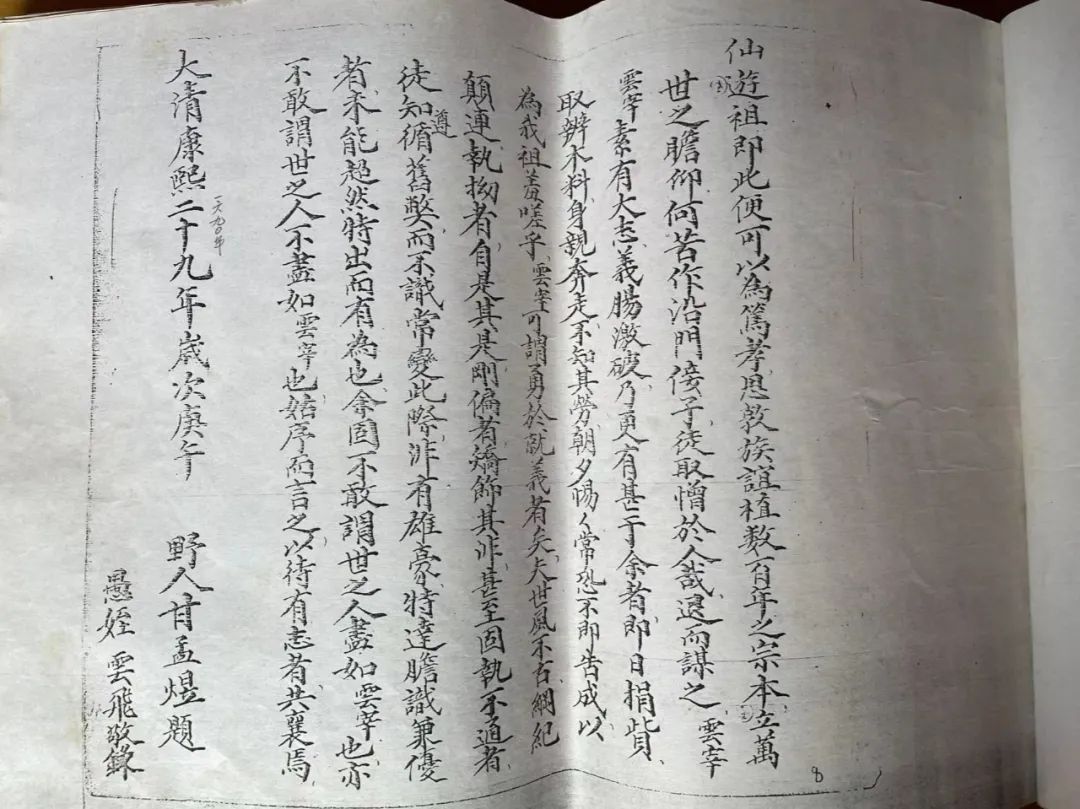 仙遊祖即此便可以為篤孝思敦族誼植數百年之宗本立萬
世之瞻仰何苦作沿門侫子徒取憎於人哉退而謀之 雲宰
雲宰素有大志義腸激破乃更有甚于余者即日捐貲
取辦木料身親奔走不知其勞朝夕惕々常恐不即告成以
為我祖羞嗟乎雲宰可謂勇於就義者矣夫世風不古綱紀
顛連執拗者自是其是剛偏者矯飾其非甚至固執不通者
徒知循遵舊獘而不識常變此際非有雄豪特達膽識兼優
者未能超然特出而有為也余固不敢謂世之人盡如雲宰也亦
不敢謂世之人不盡如雲宰也姑序而言之以待有志者共襄焉
大清康熙二十九年歲次庚午 野人甘孟煜題
一六九〇年
愚姪雲飛敬錄
8